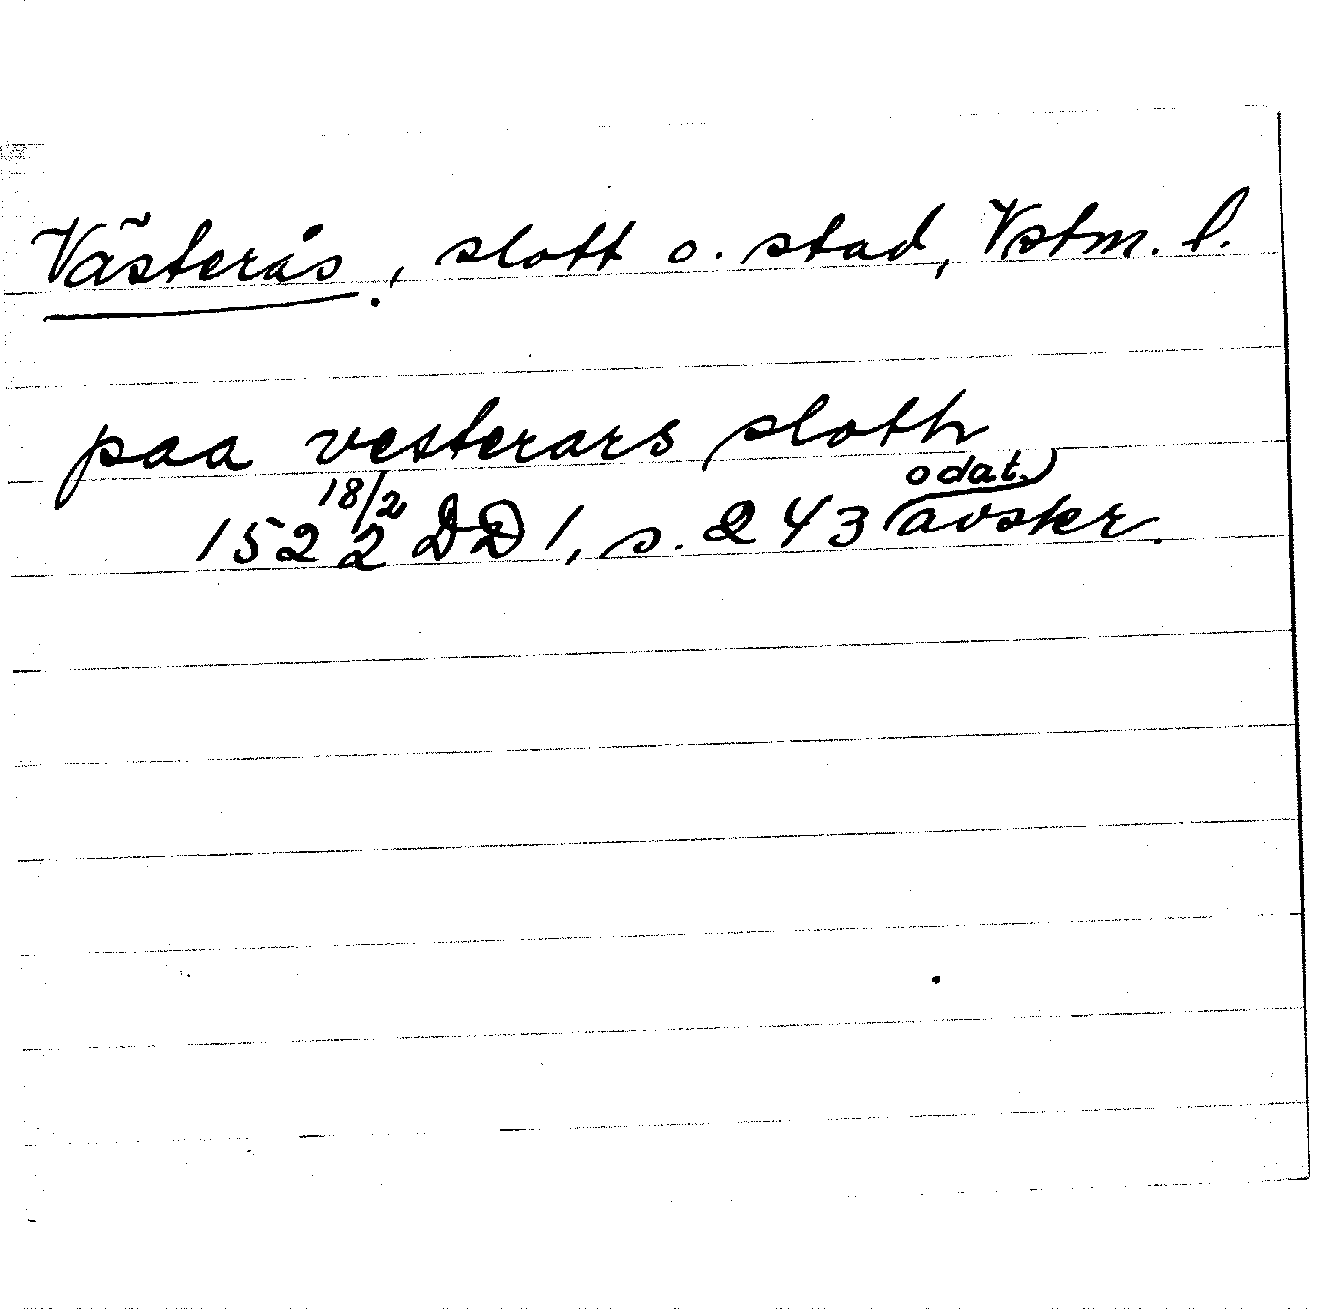 Västerås, slott o. stad, Vstm. l.
paa vesterars sloth
1522 18/2 DD 1, s. 243 (odat. avskr.)